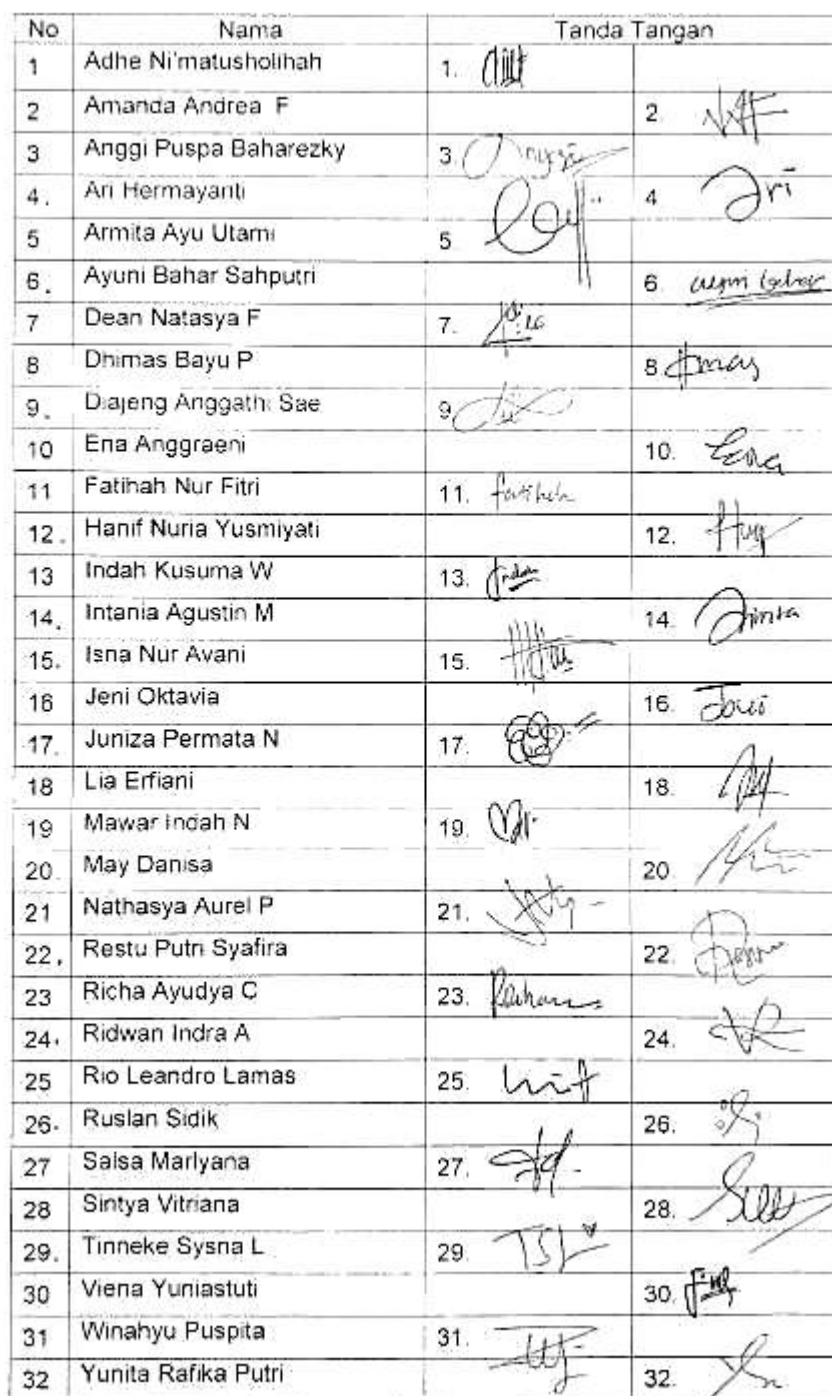 No Nama Tanda Tangan
1 Adhe Ni'matusholihah 1.
2 Amanda Andrea F 2.
3 Anggi Puspa Baharezky 3.
4. Ari Hermayanti 4 Ari
5 Armita Ayu Utami 5
6. Ayuni Bahar Sahputri 6.
7 Dean Natasya F 7.
8 Dhimas Bayu P 8
9. Diajeng Anggathi Sae 9
10 Ena Anggraeni 10.
11 Fatihah Nur Fitri 11. fatihah
12. Hanif Nuria Yusmiyati 12.
13 Indah Kusuma W 13. Indah
14. Intania Agustin M 14.
15. Isna Nur Avani 15.
16 Jeni Oktavia 16.
17. Juniza Permata N 17.
18 Lia Erfiani 18.
19 Mawar Indah N 19.
20. May Danisa 20.
21 Nathasya Aurel P 21.
22. Restu Putri Syafira 22.
23 Richa Ayudya C 23.
24. Ridwan Indra A 24.
25 Rio Leandro Lamas 25.
26. Ruslan Sidik 26.
27 Salsa Marlyana 27.
28 Sintya Vitriana 28.
29. Tinneke Sysna L 29. TSL
30 Viena Yuniastuti 30.
31 Winahyu Puspita 31.
32 Yunita Rafika Putri 32.